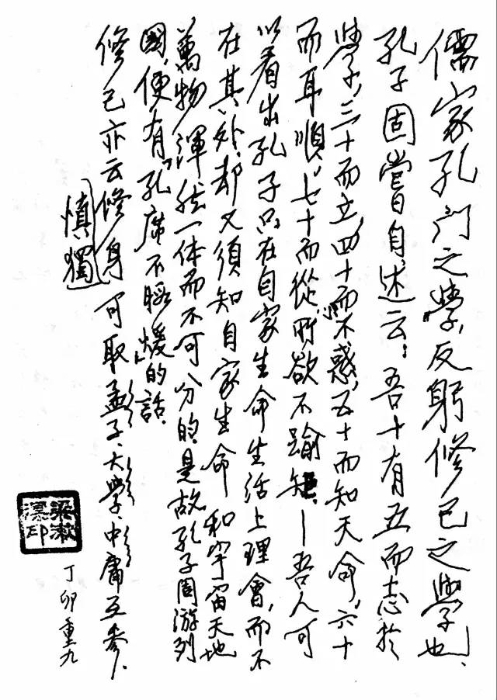 儒家孔门之學,反躬修己之學也、
孔子固嘗自述云:吾十有五而志於
學,三十而立,四十而不惑,五十而知天命,六十
而耳順,七十而從心所欲不踰矩。—吾人可
以看出孔子只在自家生命生活上理會,而不
在其外、却又須知自家生命和宇宙天地
萬物渾然一体而不可分的。是故孔子周游列
國,便有"孔席不暇煖"的話。
修己亦云修身,可取孟子、大學、中庸互參、
慎獨
丁卯重九
梁漱溟印